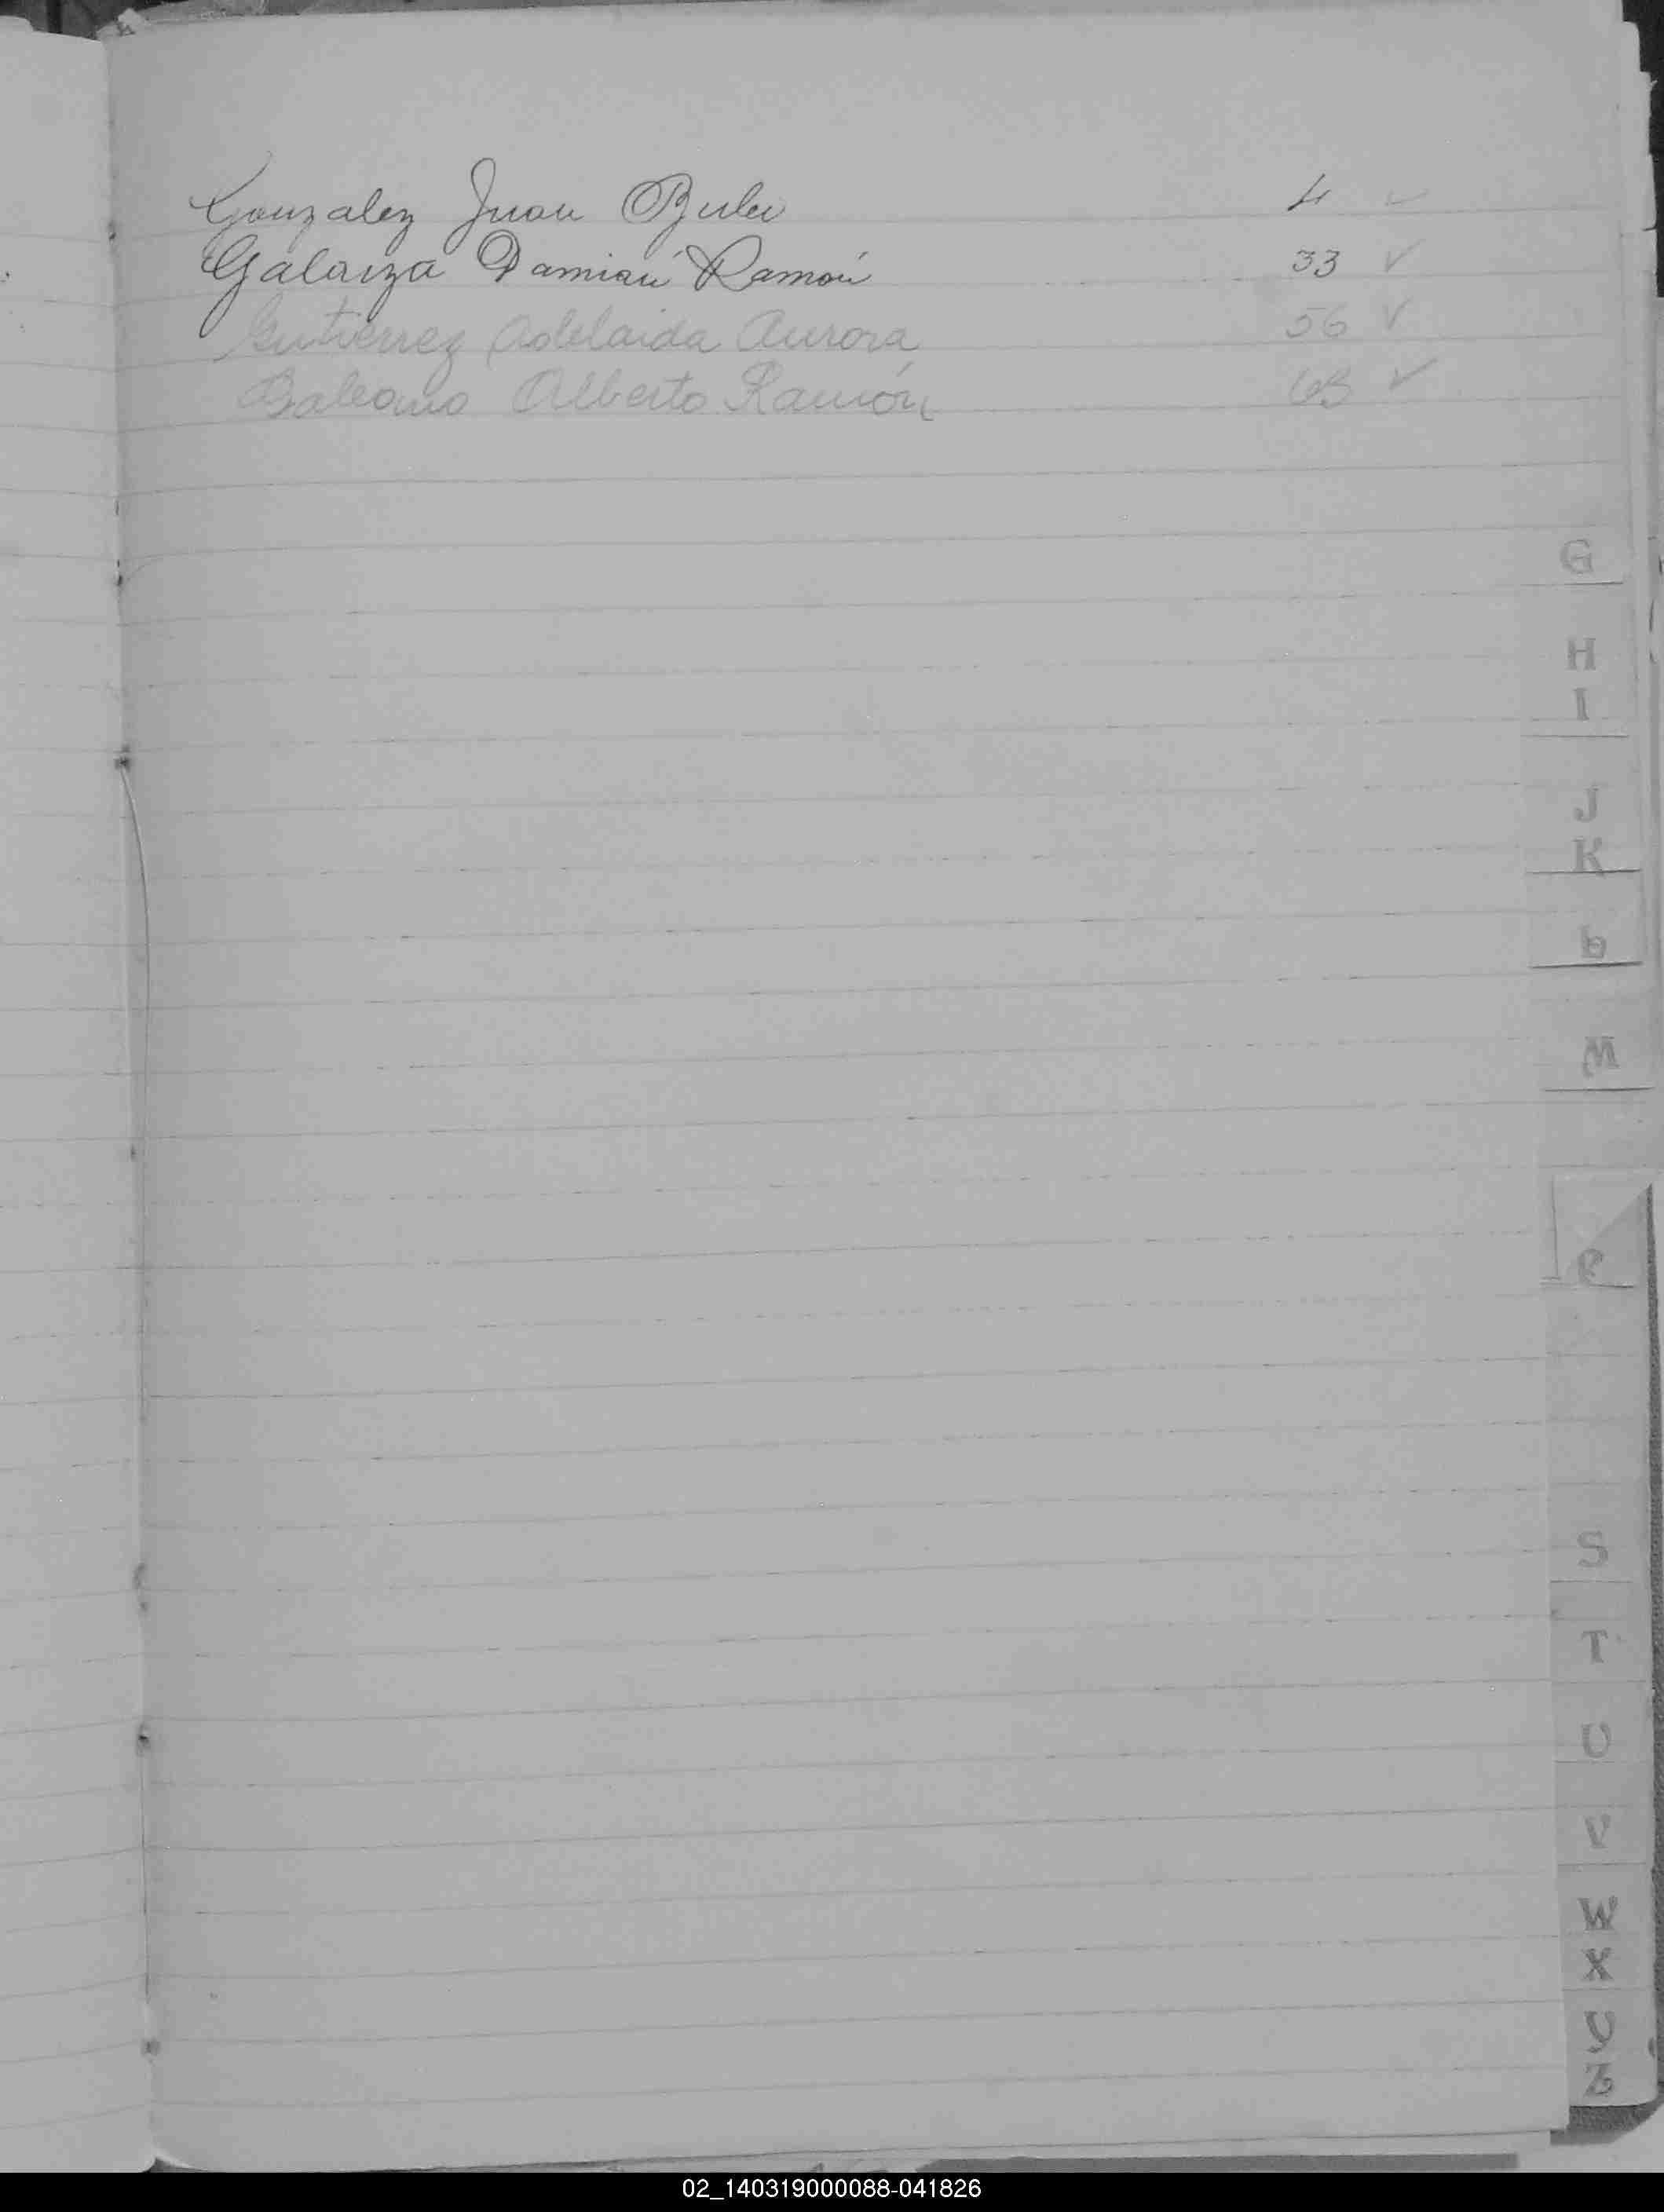 Gonzalez Juan 4 ✓
Galarza Damián Ramón 33 ✓
Gutierrez Adelaida Aurora 56 ✓
Galeano Alberto Ramón 63 ✓
G
H
I
J
K
L
M
R
S
T
U
V
W
X
Y
Z
02_140319000088-041826